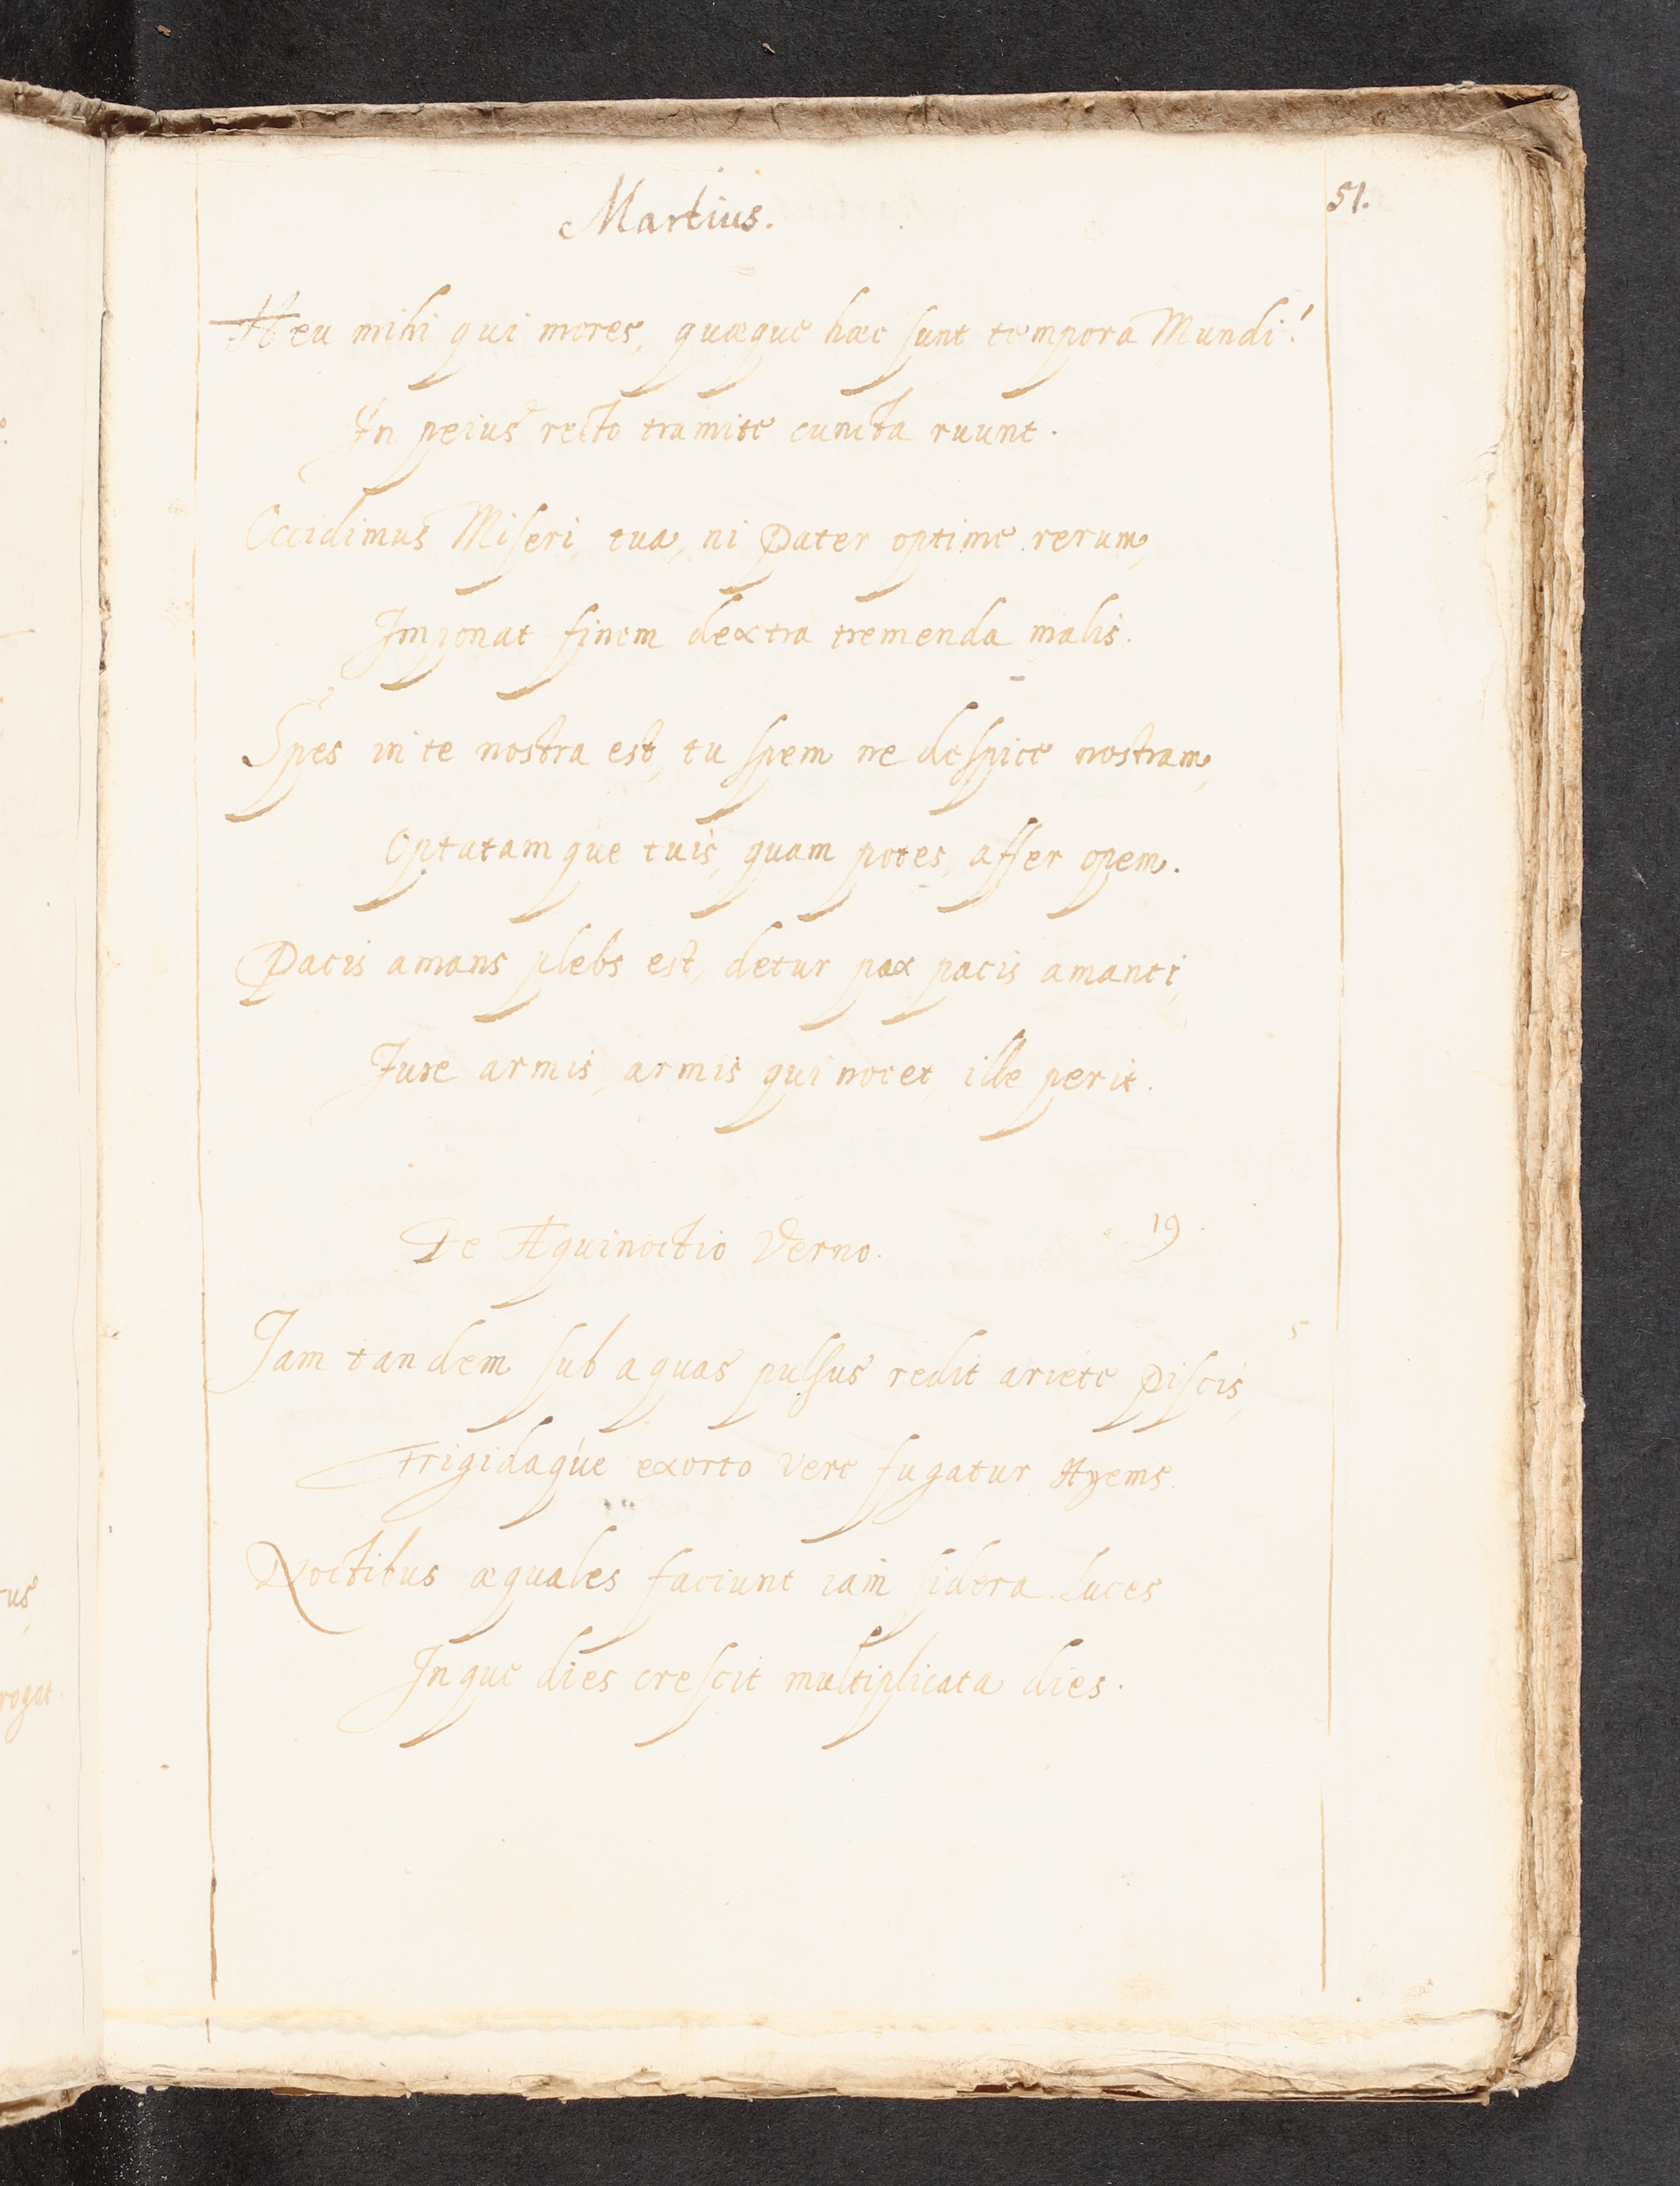 Martius.
51.
Heu mihi qui mores, quæque hæc sunt tempora Mundi!
In peius recto tramite cuncta ruunt.
Occidimus Miseri, tua, ni Pater optime rerum,
Imponat finem dextra tremenda malis.
Spes in te nostra est, tu spem ne despice nostram,
Optatamque tuis, quam potes, affer opem.
Pacis amans plebs est, detur pax pacis amanti,
Jure armis, armis qui nocet, ille perit.
De Æquinoctio Verno. 19
Jam tandem sub aquas pulsus redit ariete Piscis,
Frigidaque exorto vere fugatur Hyems.
Noctibus æquales faciunt iam sidera Luces
Inque dies crescit multiplicata dies.
rus
rogat.